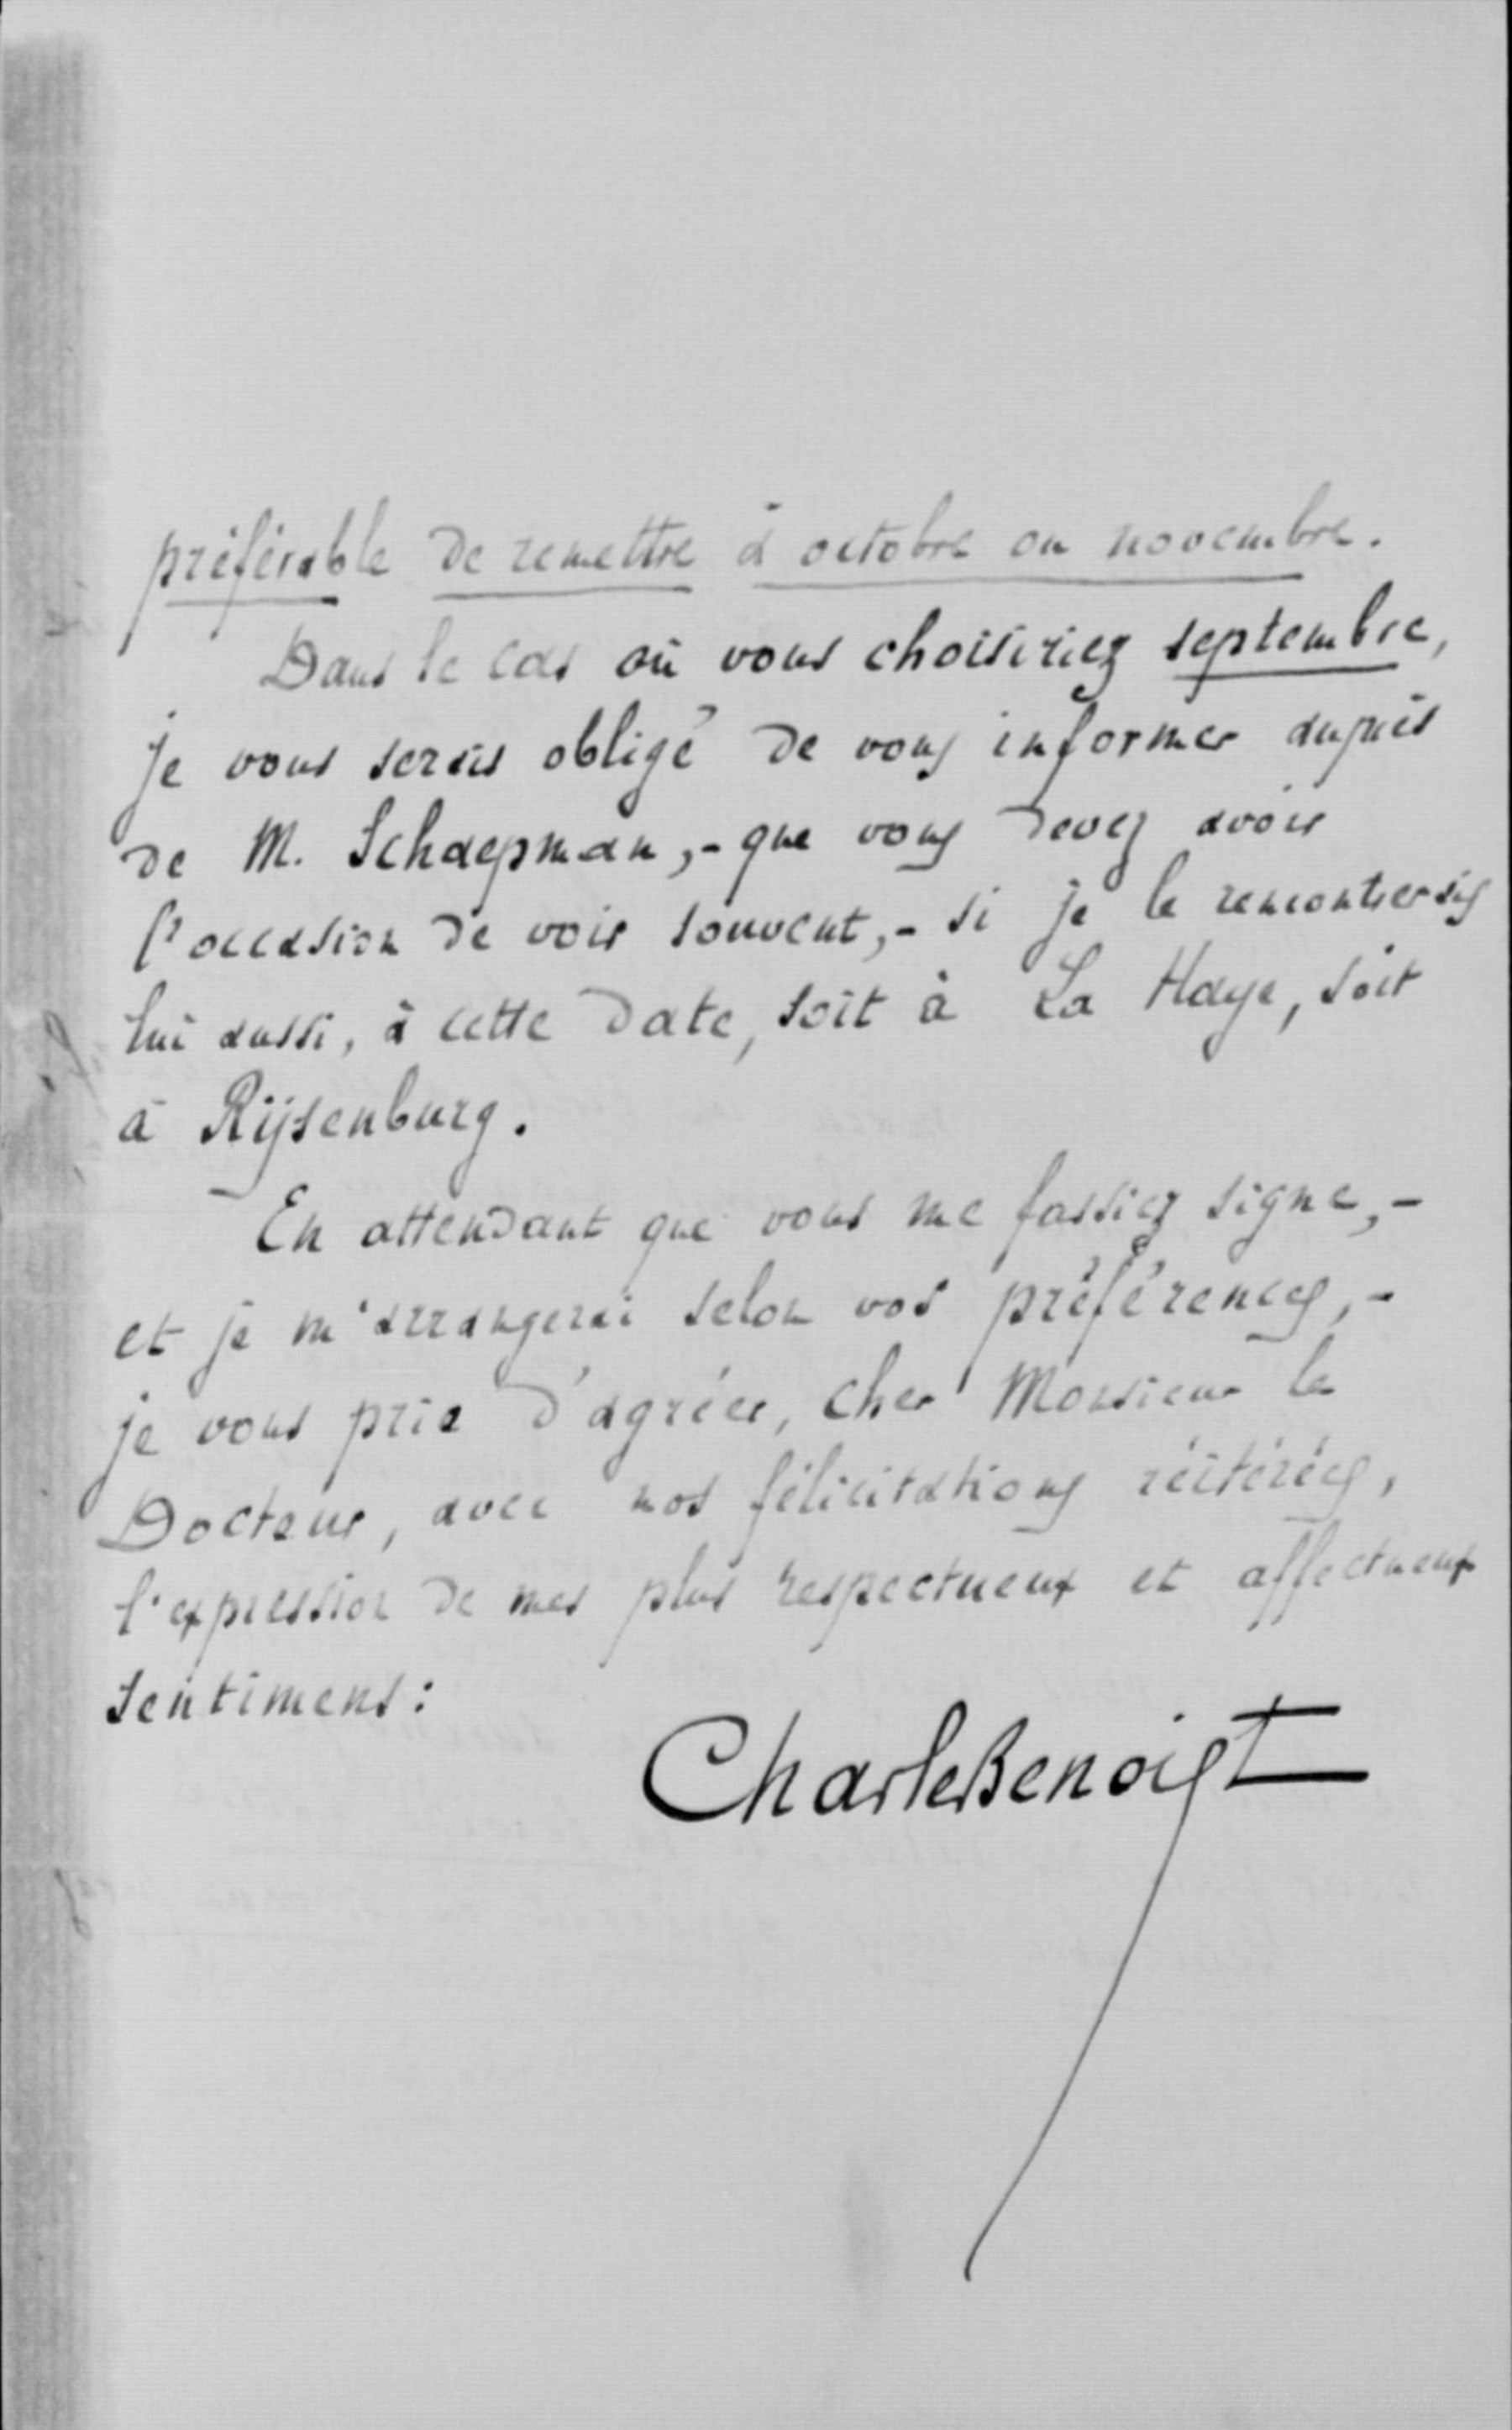 préférable de remettre à octobre ou novembre.
Dans le cas où vous choisiriez septembre,
je vous serais obligé de vous informer auprès
de M. Schaepman, - que vous devez avoir
l'occasion de voir souvent, - si je le rencontrerais
lui aussi, à cette date, soit à La Haye, soit
à Rijsenburg.
En attendant que vous me fassiez signe, -
et je m'arrangerai selon vos préférences, -
je vous prie d'agréer, cher Monsieur le
Docteur, avec nos félicitations réitérées,
l'expression de mes plus respectueux et affectueux
sentimens :
Charles Benoist